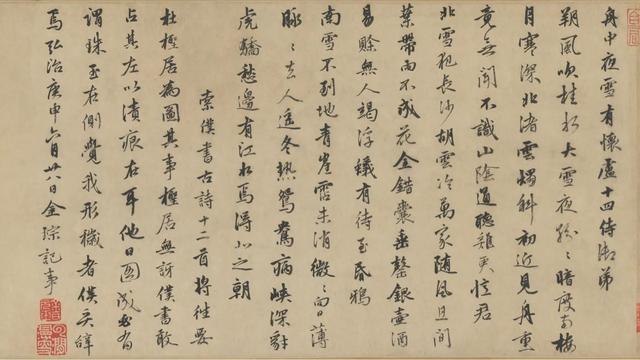 舟中夜雪有懷盧十四侍御弟
朔風吹桂水大雪夜紛〻暗度南樓
月寒深北渚雲燭斜初近見舟重
竟無聞不識山陰道聽雞更憶君
北雪犯長沙胡雲冷萬家隨風且間
葉帶雨不成花金錯囊垂罄銀壺酒
易賒無人竭浮蟻有待至昏鴉
南雪不到地青崖霑未消微〻向日薄
脉〻去人遙冬熱鴛鴦病峽深豺
虎驕愁邊有江水焉得北之朝
索僕書古詩十二首將往要
杜檉居為圖其事檉居無訝僕書敢
占其左以漬痕在耳他日圖成必有
謂珠玉在側覺我形穢者僕亦
焉弘治庚申六月廿八日金琮記事